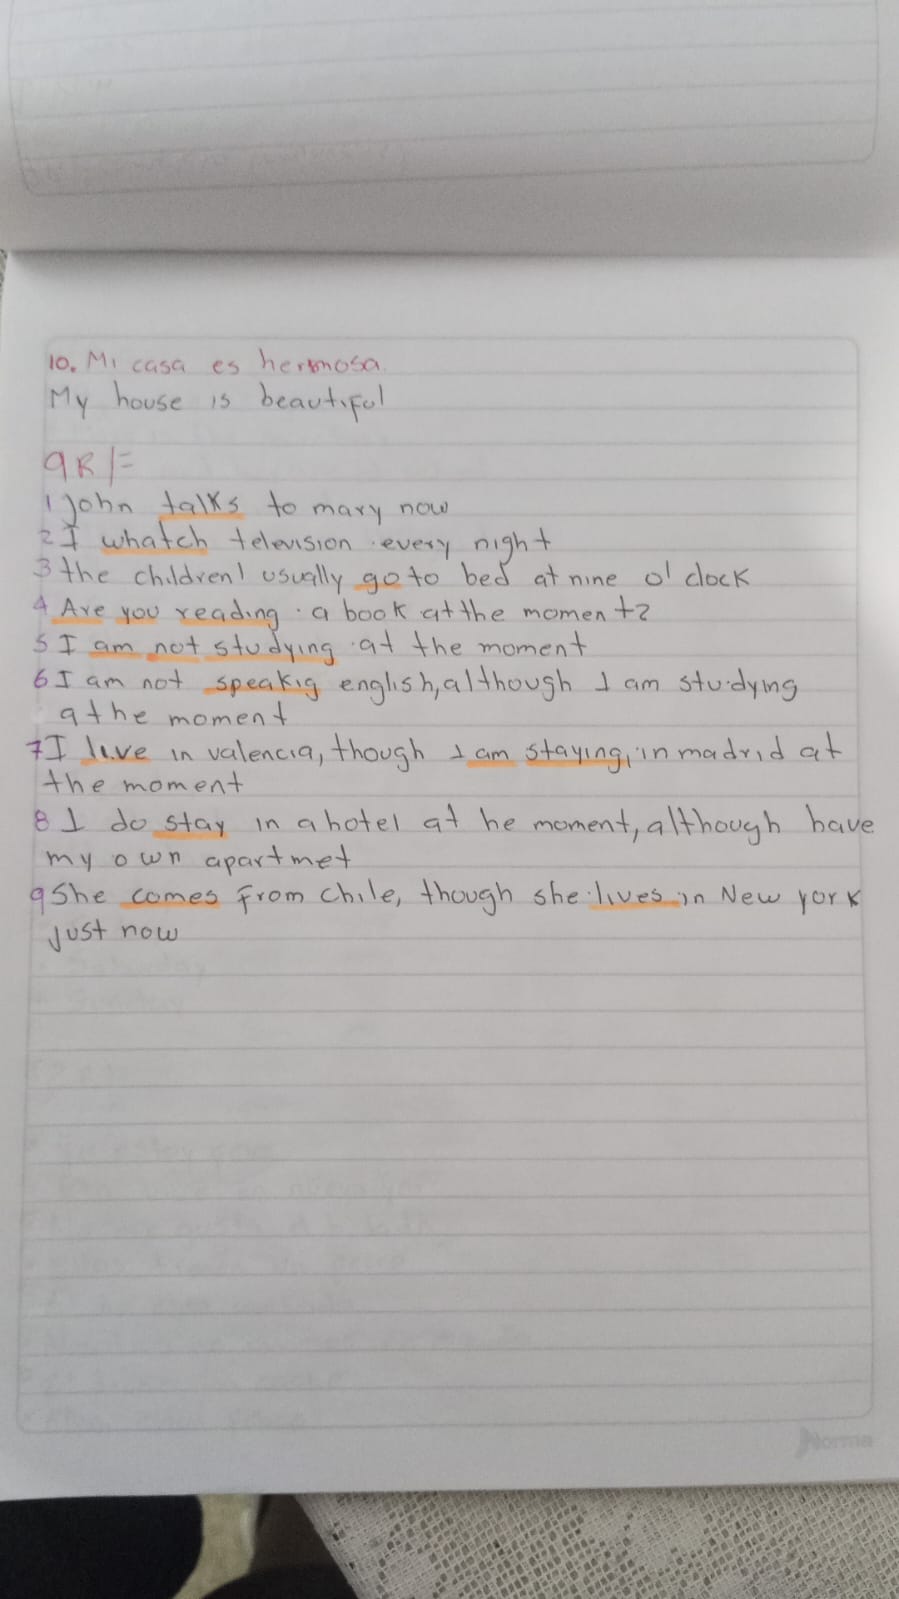 10. Mi casa es hermosa.
My house is beautiful
9R/=
1 John talks to mary now
2 I whatch television every night
3 the children' usually go to bed at nine o' clock
4 Are you reading a book at the moment?
5 I am not studying at the moment
6 I am not speakig english, although I am studying
athe moment
7 I live in valencia, though I am staying, in madrid at
the moment
8 I do stay in a hotel at he moment, although have
my own apartmet
9 She comes from chile, though she lives in New york
just now
Norma